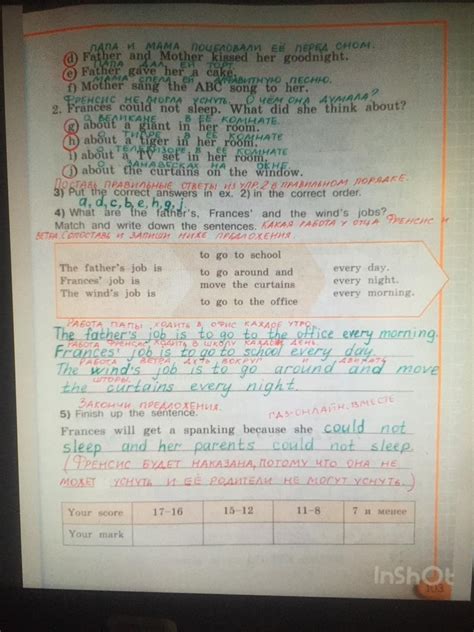 ПАПА И МАМА ПОЦЕЛОВАЛИ ЕЁ ПЕРЕД СНОМ.
d) Father and Mother kissed her goodnight.
ПАПА ДАЛ ЕЙ ТОРТ.
e) Father gave her a cake.
МАМА СПЕЛА ЕЙ АЛФАВИТНУЮ ПЕСНЮ.
f) Mother sang the ABC song to her.
ФРЕНСИС НЕ МОГЛА УСНУТЬ. О ЧЁМ ОНА ДУМАЛА?
2. Frances could not sleep. What did she think about?
О ВЕЛИКАНЕ В ЕЁ КОМНАТЕ.
g) about a giant in her room.
О ТИГРЕ В ЕЁ КОМНАТЕ
h) about a tiger in her room.
О ТЕЛЕВИЗОРЕ В ЕЁ КОМНАТЕ
i) about a TV set in her room.
О ЗАНАВЕСКАХ НА ОКНЕ.
j) about the curtains on the window.
ПОСТАВЬ ПРАВИЛЬНЫЕ ОТВЕТЫ ИЗ УПР. 2 В ПРАВИЛЬНОМ ПОРЯДКЕ.
3) Put the correct answers in ex. 2) in the correct order.
a, d, c, b, e, h, g, j
4) What are the father's, Frances' and the wind's jobs?
КАКАЯ РАБОТА У ОТЦА ФРЕНСИС И
Match and write down the sentences.
ВЕТРА. СОПОСТАВЬ И ЗАПИШИ НИЖЕ ПРЕДЛОЖЕНИЯ.
to go to school
The father's job is to go around and every day.
Frances' job is move the curtains every night.
The wind's job is every morning.
to go to the office
РАБОТА ПАПЫ ХОДИТЬ В ОФИС КАЖДОЕ УТРО.
The father's job is to go to the office every morning.
РАБОТА ФРЕНСИС ХОДИТЬ В ШКОЛУ КАЖДЫЙ ДЕНЬ.
Frances' job is to go to school every day.
РАБОТА ВЕТРА, ДУТЬ ВОКРУГ И ДВИГАТЬ
The wind's job is to go around and move
ШТОРЫ.
the curtains every night.
ЗАКОНЧИ ПРЕДЛОЖЕНИЯ.
ГДЗ-ОНЛАЙН. ВМЕСТЕ
5) Finish up the sentence.
Frances will get a spanking because she could not
sleep and her parents could not sleep.
(ФРЕНСИС БУДЕТ НАКАЗАНА, ПОТОМУ ЧТО ОНА НЕ
МОЖЕТ УСНУТЬ И ЕЁ РОДИТЕЛИ НЕ МОГУТ УСНУТЬ.)
Your score 17–16 15–12 11–8 7 и менее
Your mark
InShOt
103